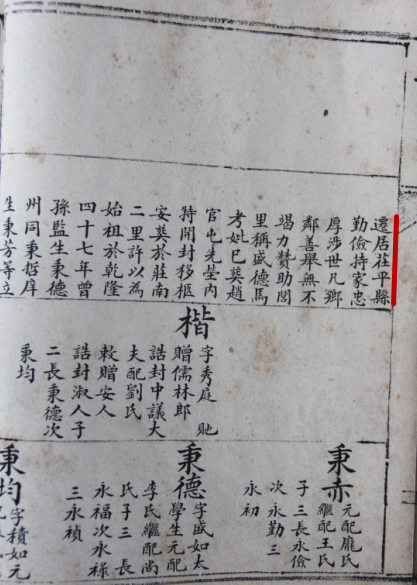 遷居茌平縣
勤儉持家忠
厚涉世凡鄉
鄰善舉無不
竭力贊助閭
里稱盛德焉
考妣已葬趙
官屯先塋內
特開封移柩
安葬於莊南
二里許以為
始祖於乾隆
四十七年曾
孫監生秉德
州同秉哲庠
生秉芳等立
楷
字秀庭 貤
贈儒林郎
誥封中議大
夫配劉氏
敕贈安人
誥封淑人子
二長秉德次
秉均
秉赤
元配龐氏
繼配王氏
子三長永儉
次永勤三
永初
秉德
字盛如太
學生元配
李氏繼配尚
氏子三 長
永福次永祿
三永禎
秉均
字積如元